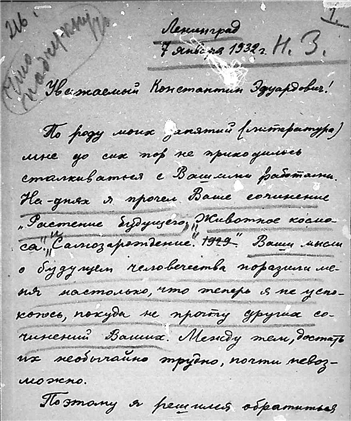 216.
1.
Ленинград
7 января 1932 г.
Н. З.
Уважаемый Константин Эдуардович!
По роду моих занятий (литература)
мне до сих пор не приходилось
сталкиваться с Вашими работами.
На-днях я прочел Ваше сочинение
„Растение будущего,„ „Животное космо-
са„ „Самозарождение. 1929„ Ваши мысли
о будущем человечества поразили ме-
ня настолько, что теперь я не успо-
коюсь, покуда не прочту других со-
чинений Ваших. Между тем, достать
их необычайно трудно, почти невоз-
можно.
Поэтому я решился обратиться